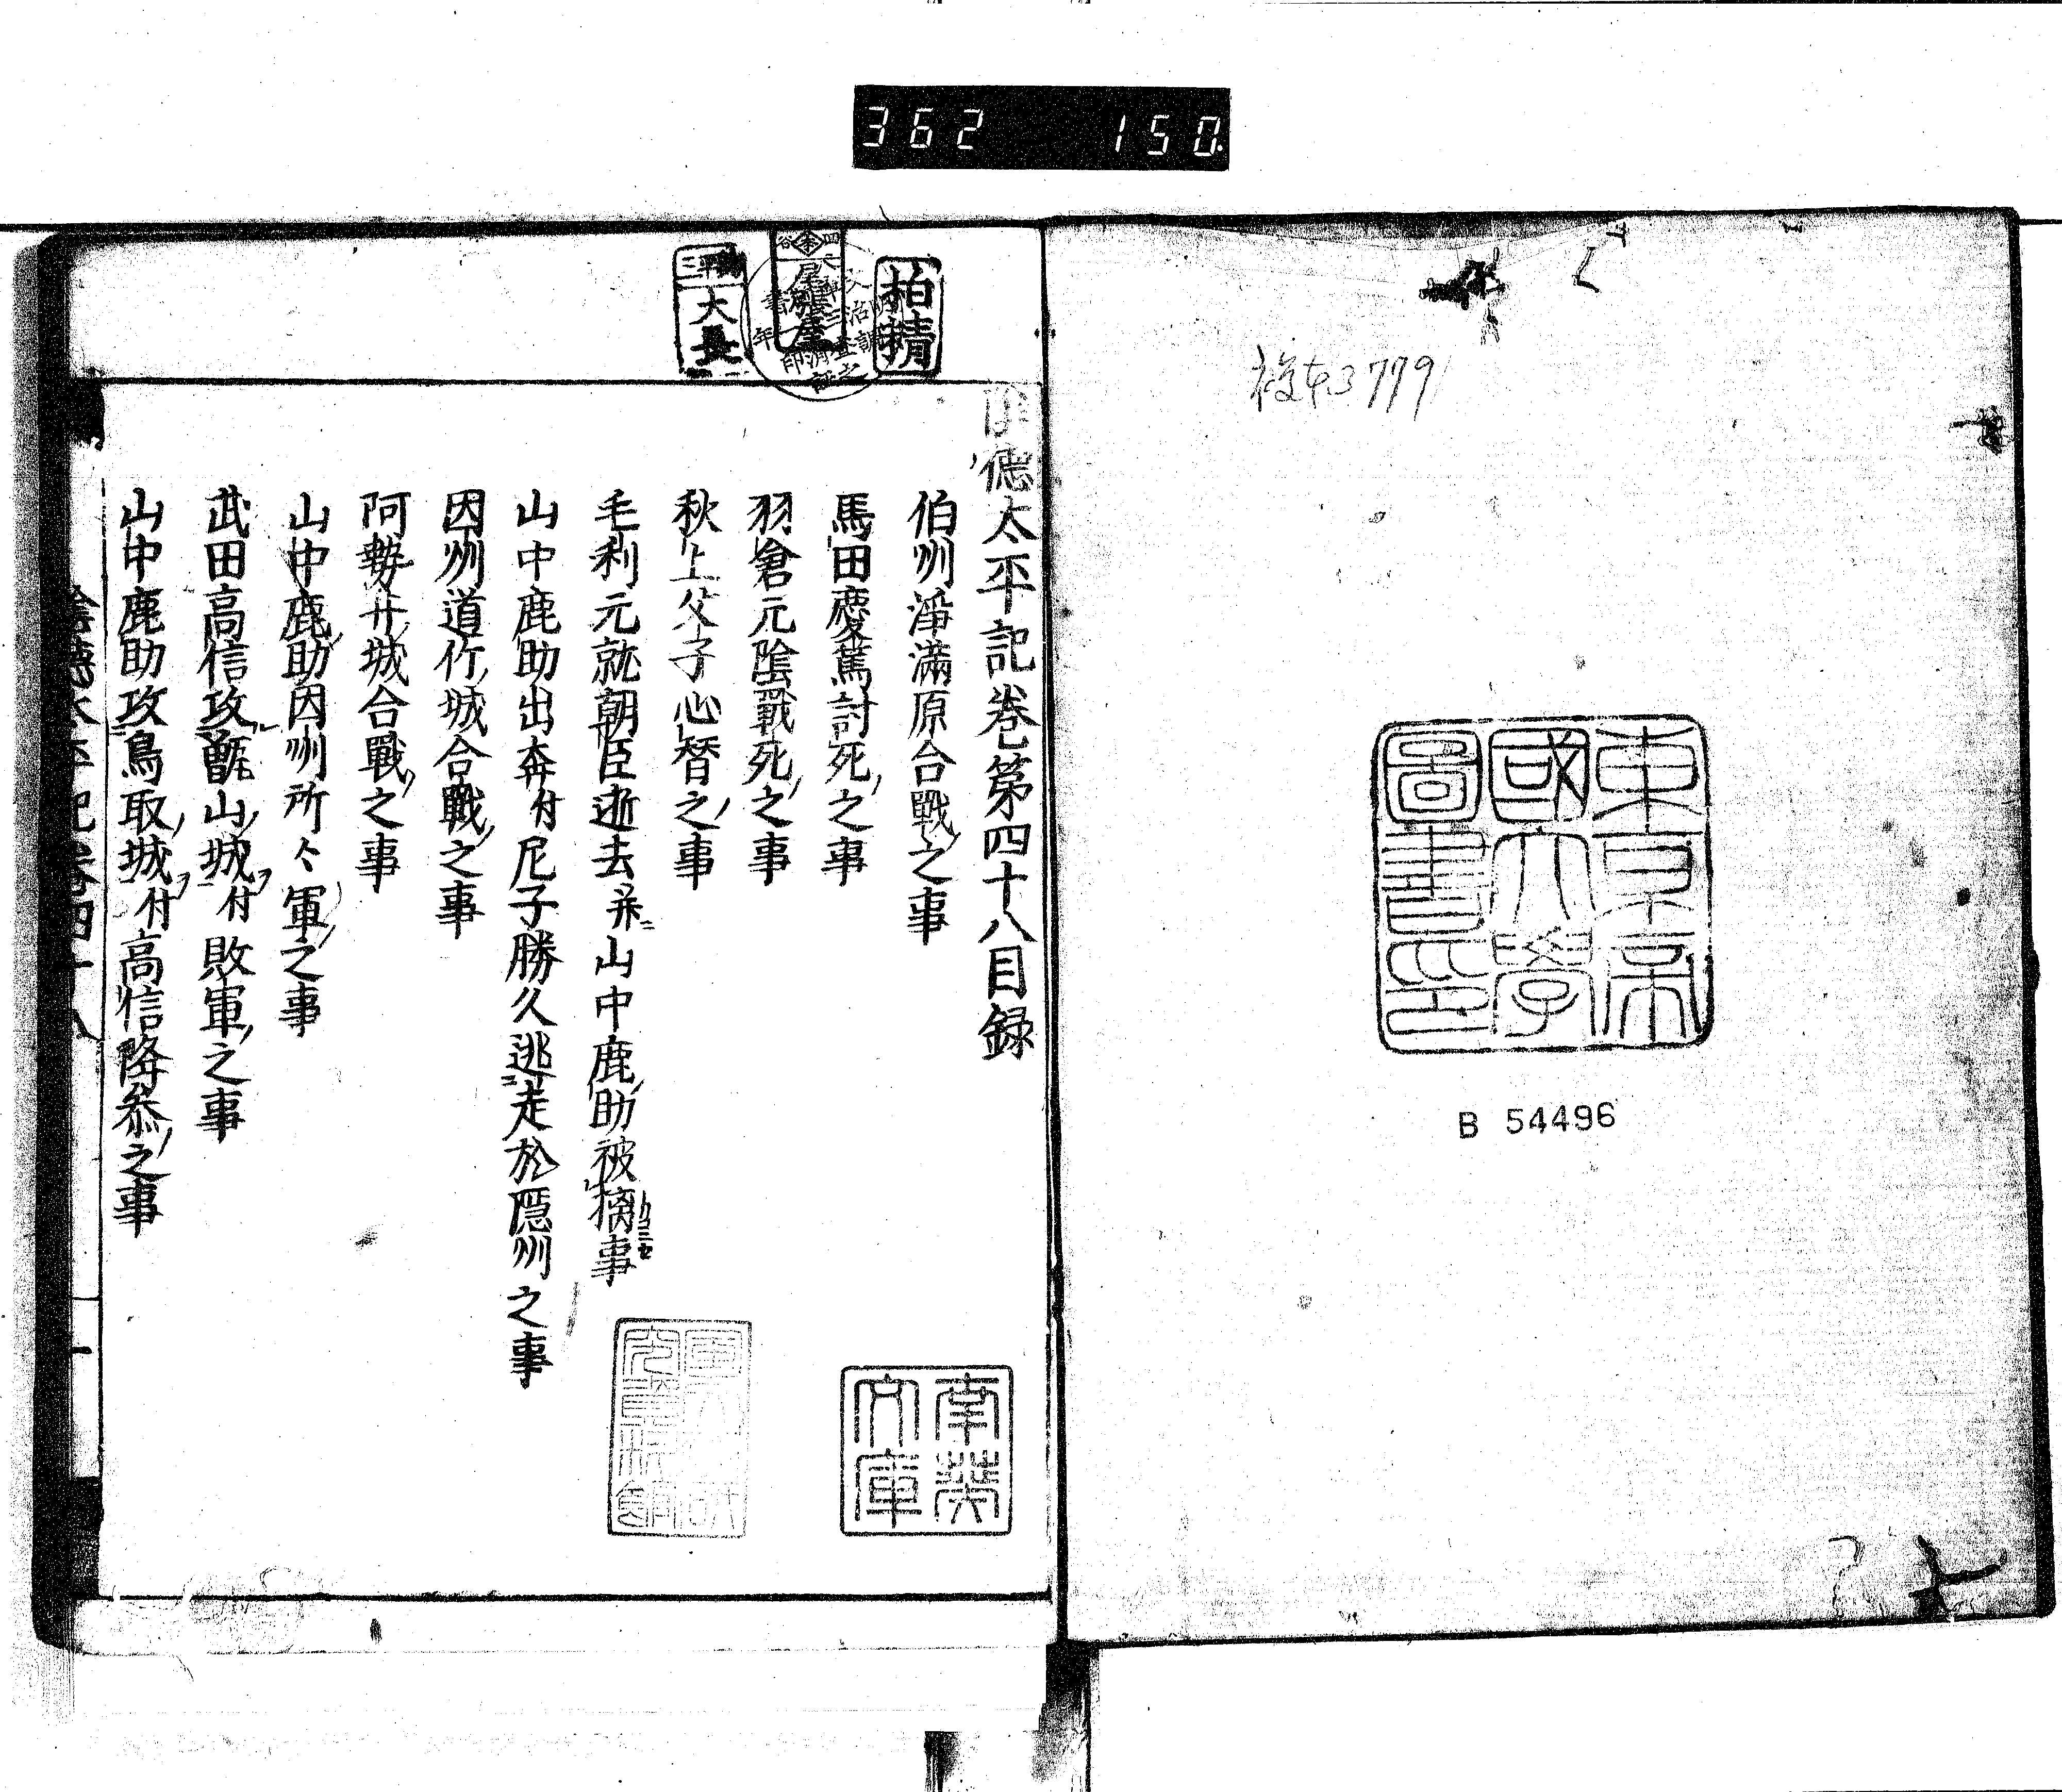 362 150
複本3779
東京帝
國大學
圖書印
B 54496
柏精
尾張屋
大長
陰德太平記卷第四十八目録
伯州淨滿原合戰之事
馬田慶篤討死之事
羽倉元陰戰死之事
秋上父子心替之事
毛利元就朝臣逝去并山中鹿助被擒事
山中鹿助出奔付尼子勝久逃走於隱州之事
因州道竹城合戰之事
阿勢井城合戰之事
山中鹿助因州所々軍之事
武田高信攻甑山城付敗軍之事
山中鹿助攻鳥取城付高信降叅之事
南葵
文庫
陰德太平記卷四十八 一